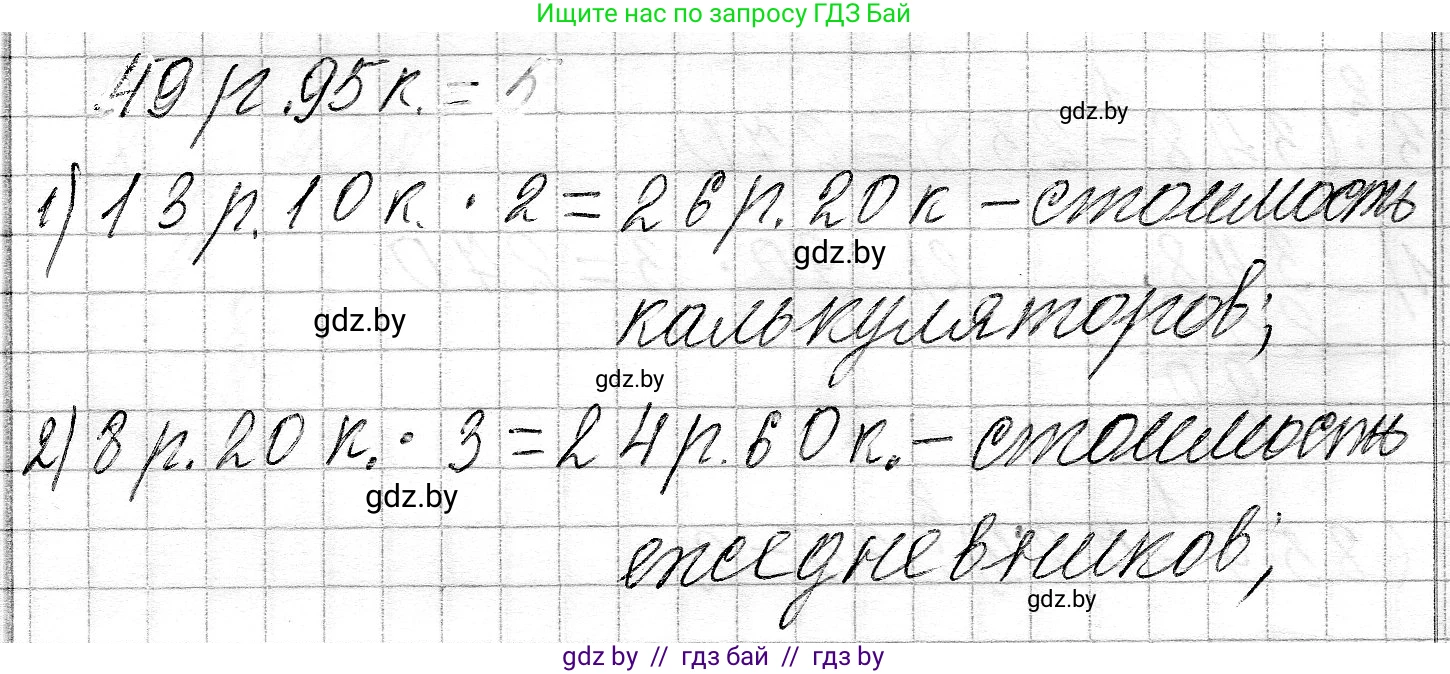 Ищите нас по запросу ГДЗ Бай
49 р. 95 к. = 5
gdz.by
1) 13 р. 10 к. · 2 = 26 р. 20 к – стоимость
gdz.by
калькуляторов;
gdz.by
gdz.by
2) 8 р. 20 к. · 3 = 24 р. 60 к. – стоимость
gdz.by
ежедневников;
gdz.by
gdz by // гдз бай // гдз by